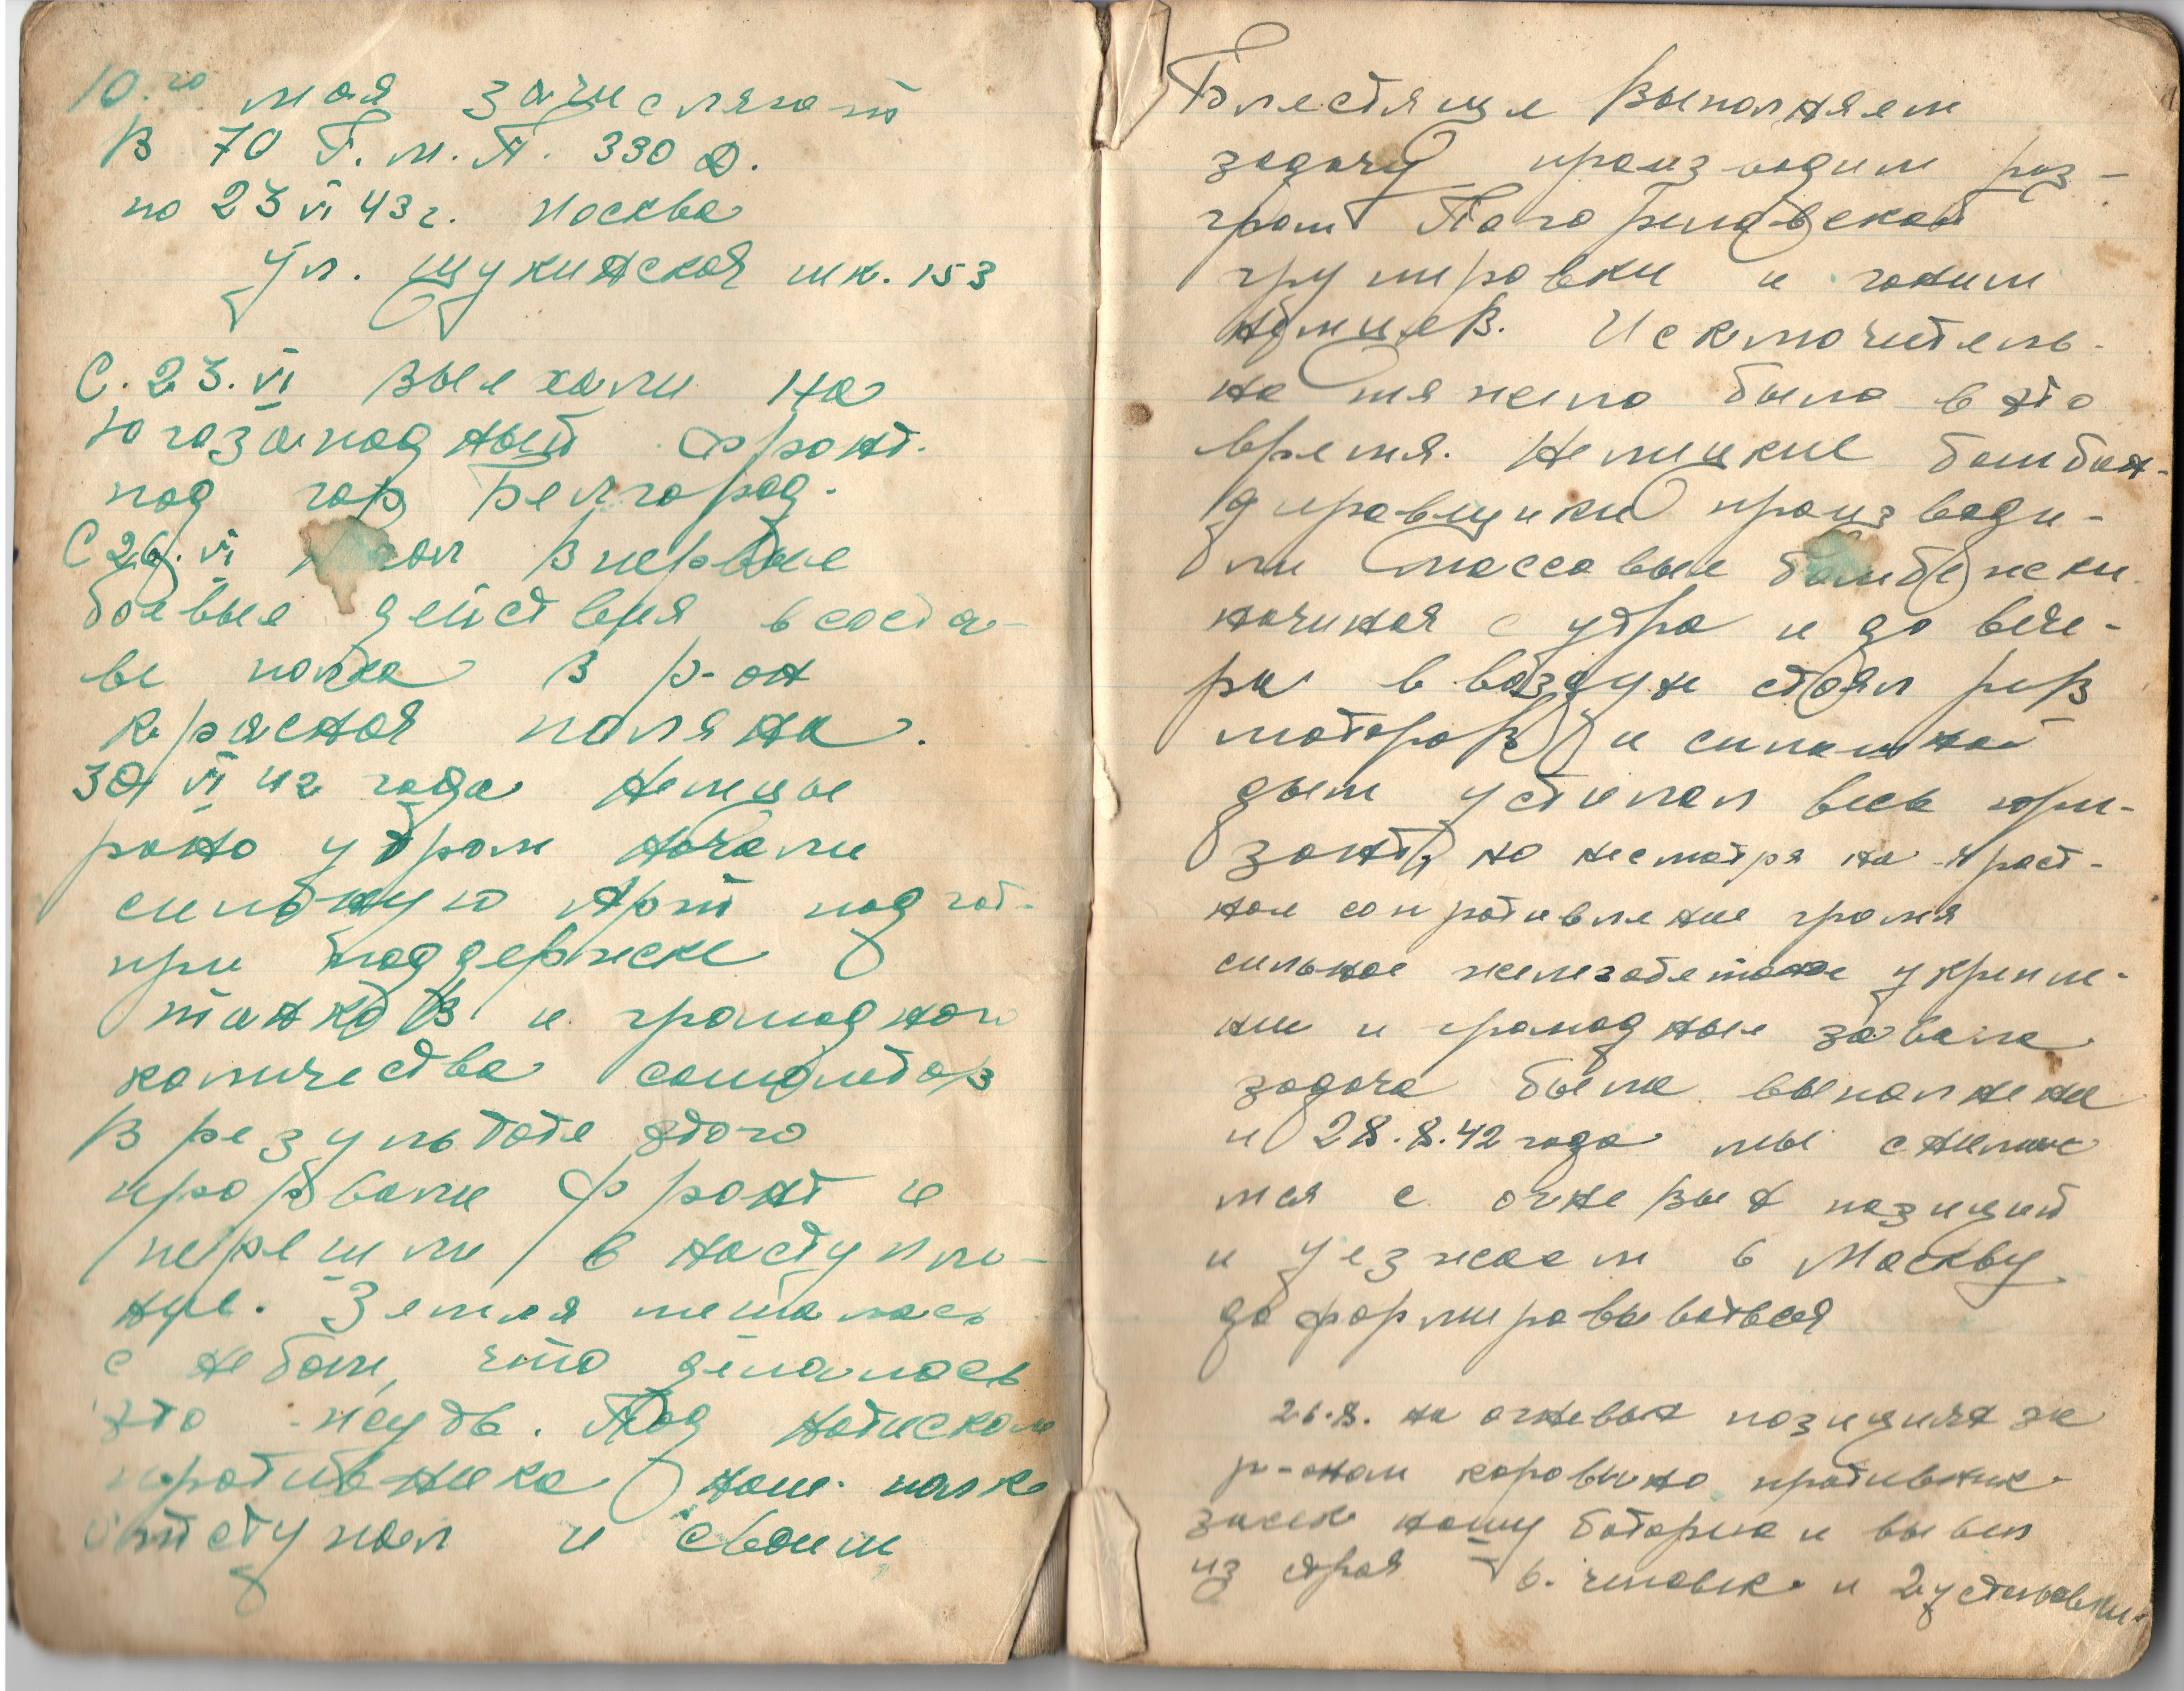 10.го мая зачисляют
в 70 Г.М.П. 330 Д.
по 23 VI 43 г. Москва
ул. щукинская шк. 153
С. 23. VI выехали на
Югозападный фронт.
под гор Белгород.
С 26. VI впервые
боевые действия в соста-
ве полка в р-он
красная поляна.
30 VI 42 года Немцы
рано утром начали
сильную Арт подгот-
при поддержке
танков и громадного
количества самолетов
В результате этого
прорвали фронт и
перешли в наступле-
ние. Земля мешалась
с небом, что делалось
это -жудь. Под натиском
противника наш полк
отступал и своим
Блестяще выполняем
задачу производим раз-
гром Погореловской
групировки и гоним
немцев. Исключитель-
но тяжело было в это
время. Немецкие бомбан-
дировщики производи-
ли массовые бомбежки
начиная с утра и до вече-
ра в воздухе стоял рев
моторов и сплошной
дым устилал весь гори-
зонт, но несмотря на яраст-
ное сопротивление громя
сильное железобетоное укрепле-
ния и громадные завала
задача была выполнена
и 28.8.42 года мы снимае
мся с огневых позиций
и уезжаем в Москву
доформировываться
26.8. на огневых позициях за
р-оном коровино противник
засек нашу батарею и вывел
из строя 6. человек и 2 установки.